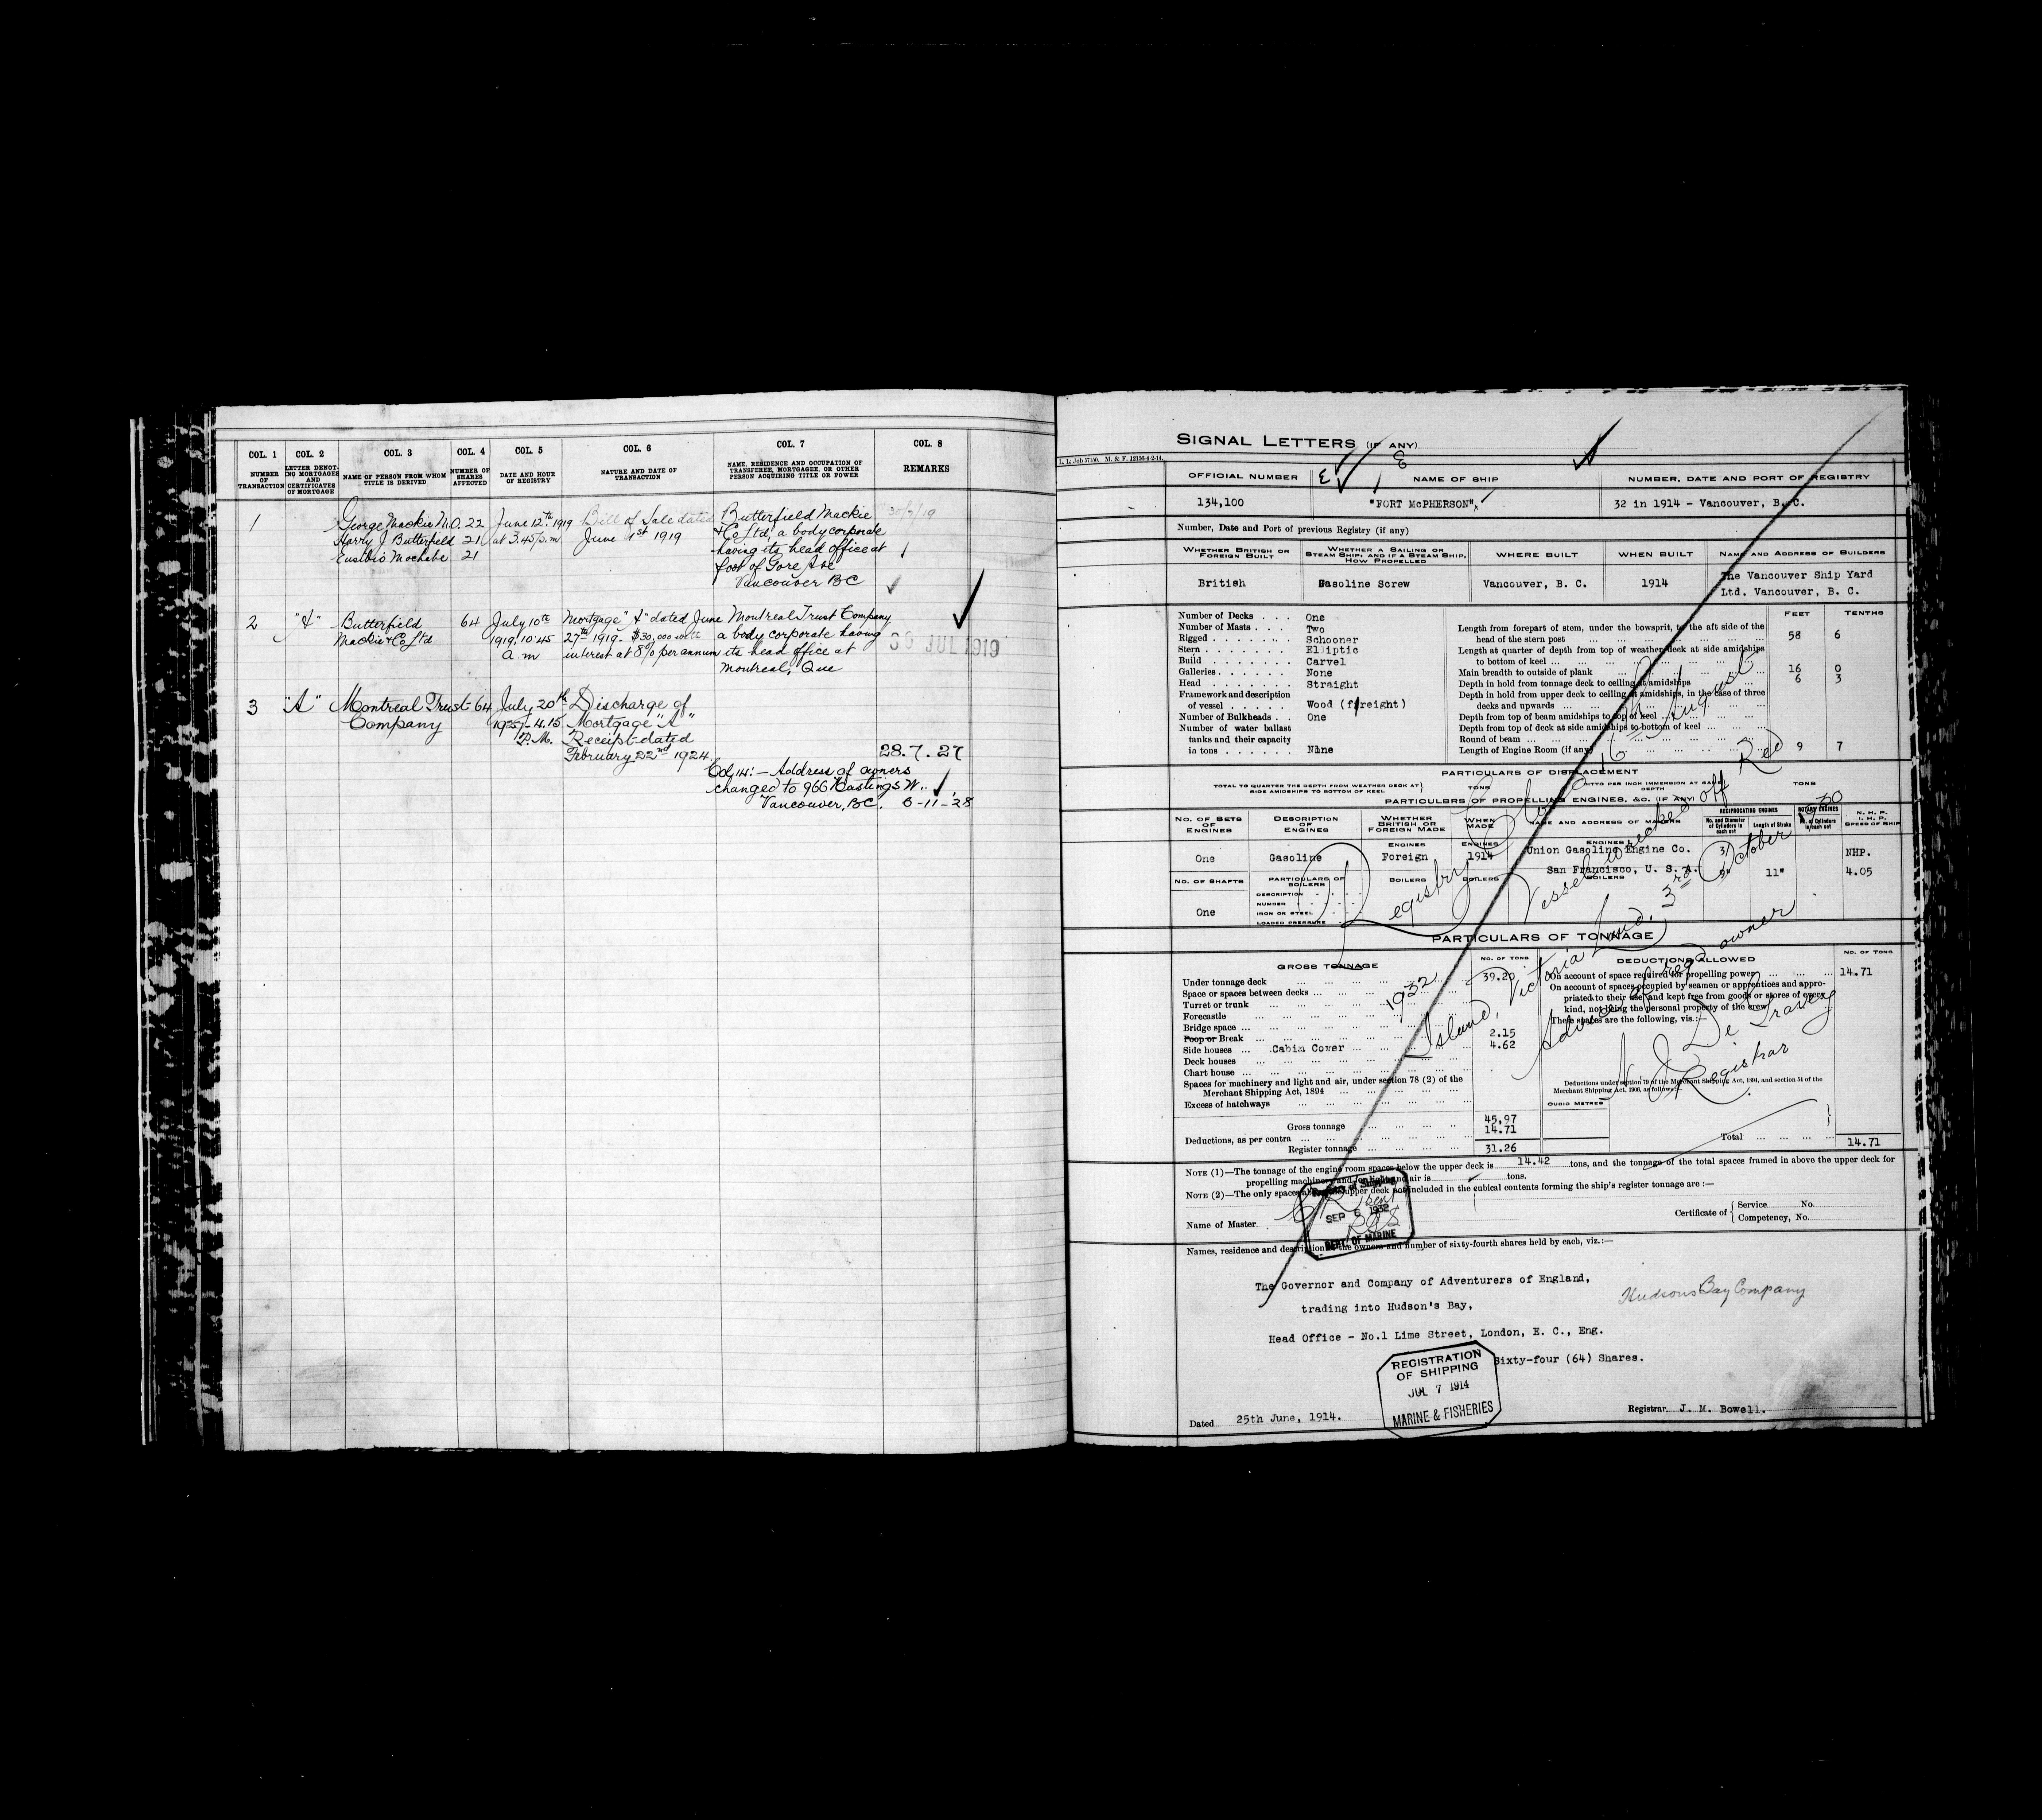 COL. 1
NUMBER OF TRANSACTION
COL. 2
LETTER DENOTING MORTGAGES AND CERTIFICATES OF MORTGAGE
COL. 3
NAME OF PERSON FROM WHOM TITLE IS DERIVED
COL. 4
NUMBER OF SHARES AFFECTED
COL. 5
DATE AND HOUR OF REGISTRY
COL. 6
NATURE AND DATE OF TRANSACTION
COL. 7
NAME, RESIDENCE AND OCCUPATION OF TRANSFEREE, MORTGAGEE, OR OTHER PERSON ACQUIRING TITLE OR POWER
COL. 8
REMARKS
1 George Mackie M.O. 22 June 12th 1919 Bill of Sale dated Butterfield Mackie 30/7/19
Harry J. Butterfield 21 at 3.45 p.m June 1st 1919 & Co Ltd, a body corporate
Eustbio Mochabe 21 having its head office at
foot of Gore Ave
Vancouver BC
2 "A" Butterfield 64 July 10th Mortgage "A" dated June Montreal Trust Company
Mackie & Co Ltd 1919, 10.45 27th 1919. $30,000 with a body corporate having 30 JUL 1919
a.m interest at 8% per annum its head office at
Montreal, Que
3 "A" Montreal Trust 64 July 20th Discharge of
Company 1927-4.15 Mortgage "A"
P.M. Receipt dated
February 22nd 1924. 28.7.27
Col 14:- Address of owners
changed to 966 Hastings W.
Vancouver, BC. 6-11-28
SIGNAL LETTERS (IF ANY)
I. L. Job 57150. M. & F. 12156-4-2-14.
OFFICIAL NUMBER NAME OF SHIP NUMBER, DATE AND PORT OF REGISTRY
134,100 "FORT McPHERSON" 32 in 1914 - Vancouver, B. C.
Number, Date and Port of previous Registry (if any)
WHETHER BRITISH OR FOREIGN BUILT
WHETHER A SAILING OR STEAM SHIP; AND IF A STEAM SHIP, HOW PROPELLED
WHERE BUILT
WHEN BUILT
NAME AND ADDRESS OF BUILDERS
British Gasoline Screw Vancouver, B. C. 1914 The Vancouver Ship Yard
Ltd. Vancouver, B. C.
FEET TENTHS
Number of Decks One
Number of Masts Two
Rigged Schooner
Stern Elliptic
Build Carvel
Galleries None
Head Straight
Framework and description of vessel Wood (freight)
Number of Bulkheads One
Number of water ballast tanks and their capacity in tons None
Length from forepart of stem, under the bowsprit, to the aft side of the
head of the stern post 58 6
Length at quarter of depth from top of weather deck at side amidships
to bottom of keel
Main breadth to outside of plank 16 0
Depth in hold from tonnage deck to ceiling at amidships 6 3
Depth in hold from upper deck to ceiling at amidships, in the case of three
decks and upwards
Depth from top of beam amidships to top of keel
Depth from top of deck at side amidships to bottom of keel
Round of beam
Length of Engine Room (if any) 9 7
PARTICULARS OF DISPLACEMENT
TOTAL TO QUARTER THE DEPTH FROM WEATHER DECK AT SIDE AMIDSHIPS TO BOTTOM OF KEEL TONS DITTO PER INCH IMMERSION AT SAME DEPTH TONS
PARTICULARS OF PROPELLING ENGINES, &C. (IF ANY)
NO. OF SETS OF ENGINES
DESCRIPTION OF ENGINES
WHETHER BRITISH OR FOREIGN MADE
WHEN MADE
NAME AND ADDRESS OF MAKERS
RECIPROCATING ENGINES
No. and Diameter of Cylinders in each set
Length of Stroke
ROTARY ENGINES
No. of Cylinders in each set
N. H. P.
I. H. P.
SPEED OF SHIP
ENGINES ENGINES ENGINES
One Gasoline Foreign 1914 Union Gasoline Engine Co. 3/ NHP.
San Francisco, U. S. A. 9" 11" 4.05
NO. OF SHAFTS PARTICULARS OF BOILERS BOILERS BOILERS BOILERS
DESCRIPTION
NUMBER
One IRON OR STEEL
LOADED PRESSURE
PARTICULARS OF TONNAGE
GROSS TONNAGE NO. OF TONS
Under tonnage deck 39.20
Space or spaces between decks
Turret or trunk
Forecastle
Bridge space
Poop or Break 2.15
Side houses Cabin Cover 4.62
Deck houses
Chart house
Spaces for machinery and light and air, under section 78 (2) of the
Merchant Shipping Act, 1894
Excess of hatchways
Gross tonnage 45.97
Deductions, as per contra 14.71
Register tonnage 31.26
DEDUCTIONS ALLOWED NO. OF TONS
On account of space required for propelling power 14.71
On account of spaces occupied by seamen or apprentices and appro-
priated to their use, and kept free from goods or stores of every
kind, not being the personal property of the crew
These spaces are the following, viz.:—
Deductions under section 79 of the Merchant Shipping Act, 1894, and section 54 of the
Merchant Shipping Act, 1906, as follows:—
CUBIC METRES
Total 14.71
Registry Closed 16th August
1932
Vessel wrecked off Red
Island, Victoria Land, 3rd October 1930
Advice of regd owner
De Gravey
Registrar
NOTE (1)—The tonnage of the engine room spaces below the upper deck is 14.42 tons, and the tonnage of the total spaces framed in above the upper deck for
propelling machinery and for light and air is tons.
NOTE (2)—The only spaces above the upper deck not included in the cubical contents forming the ship's register tonnage are :—
Name of Master
Certificate of { Service No.
Competency, No.
Registrar of Shipping
SEP 6 1932
DEPT. OF MARINE
Names, residence and description of the owners and number of sixty-fourth shares held by each, viz.:—
The Governor and Company of Adventurers of England,
trading into Hudson's Bay,
Hudsons Bay Company
Head Office - No.1 Lime Street, London, E. C., Eng.
Sixty-four (64) Shares.
REGISTRATION
OF SHIPPING
JUL 7 1914
MARINE & FISHERIES
Dated 25th June, 1914.
Registrar J. M. Bowell.